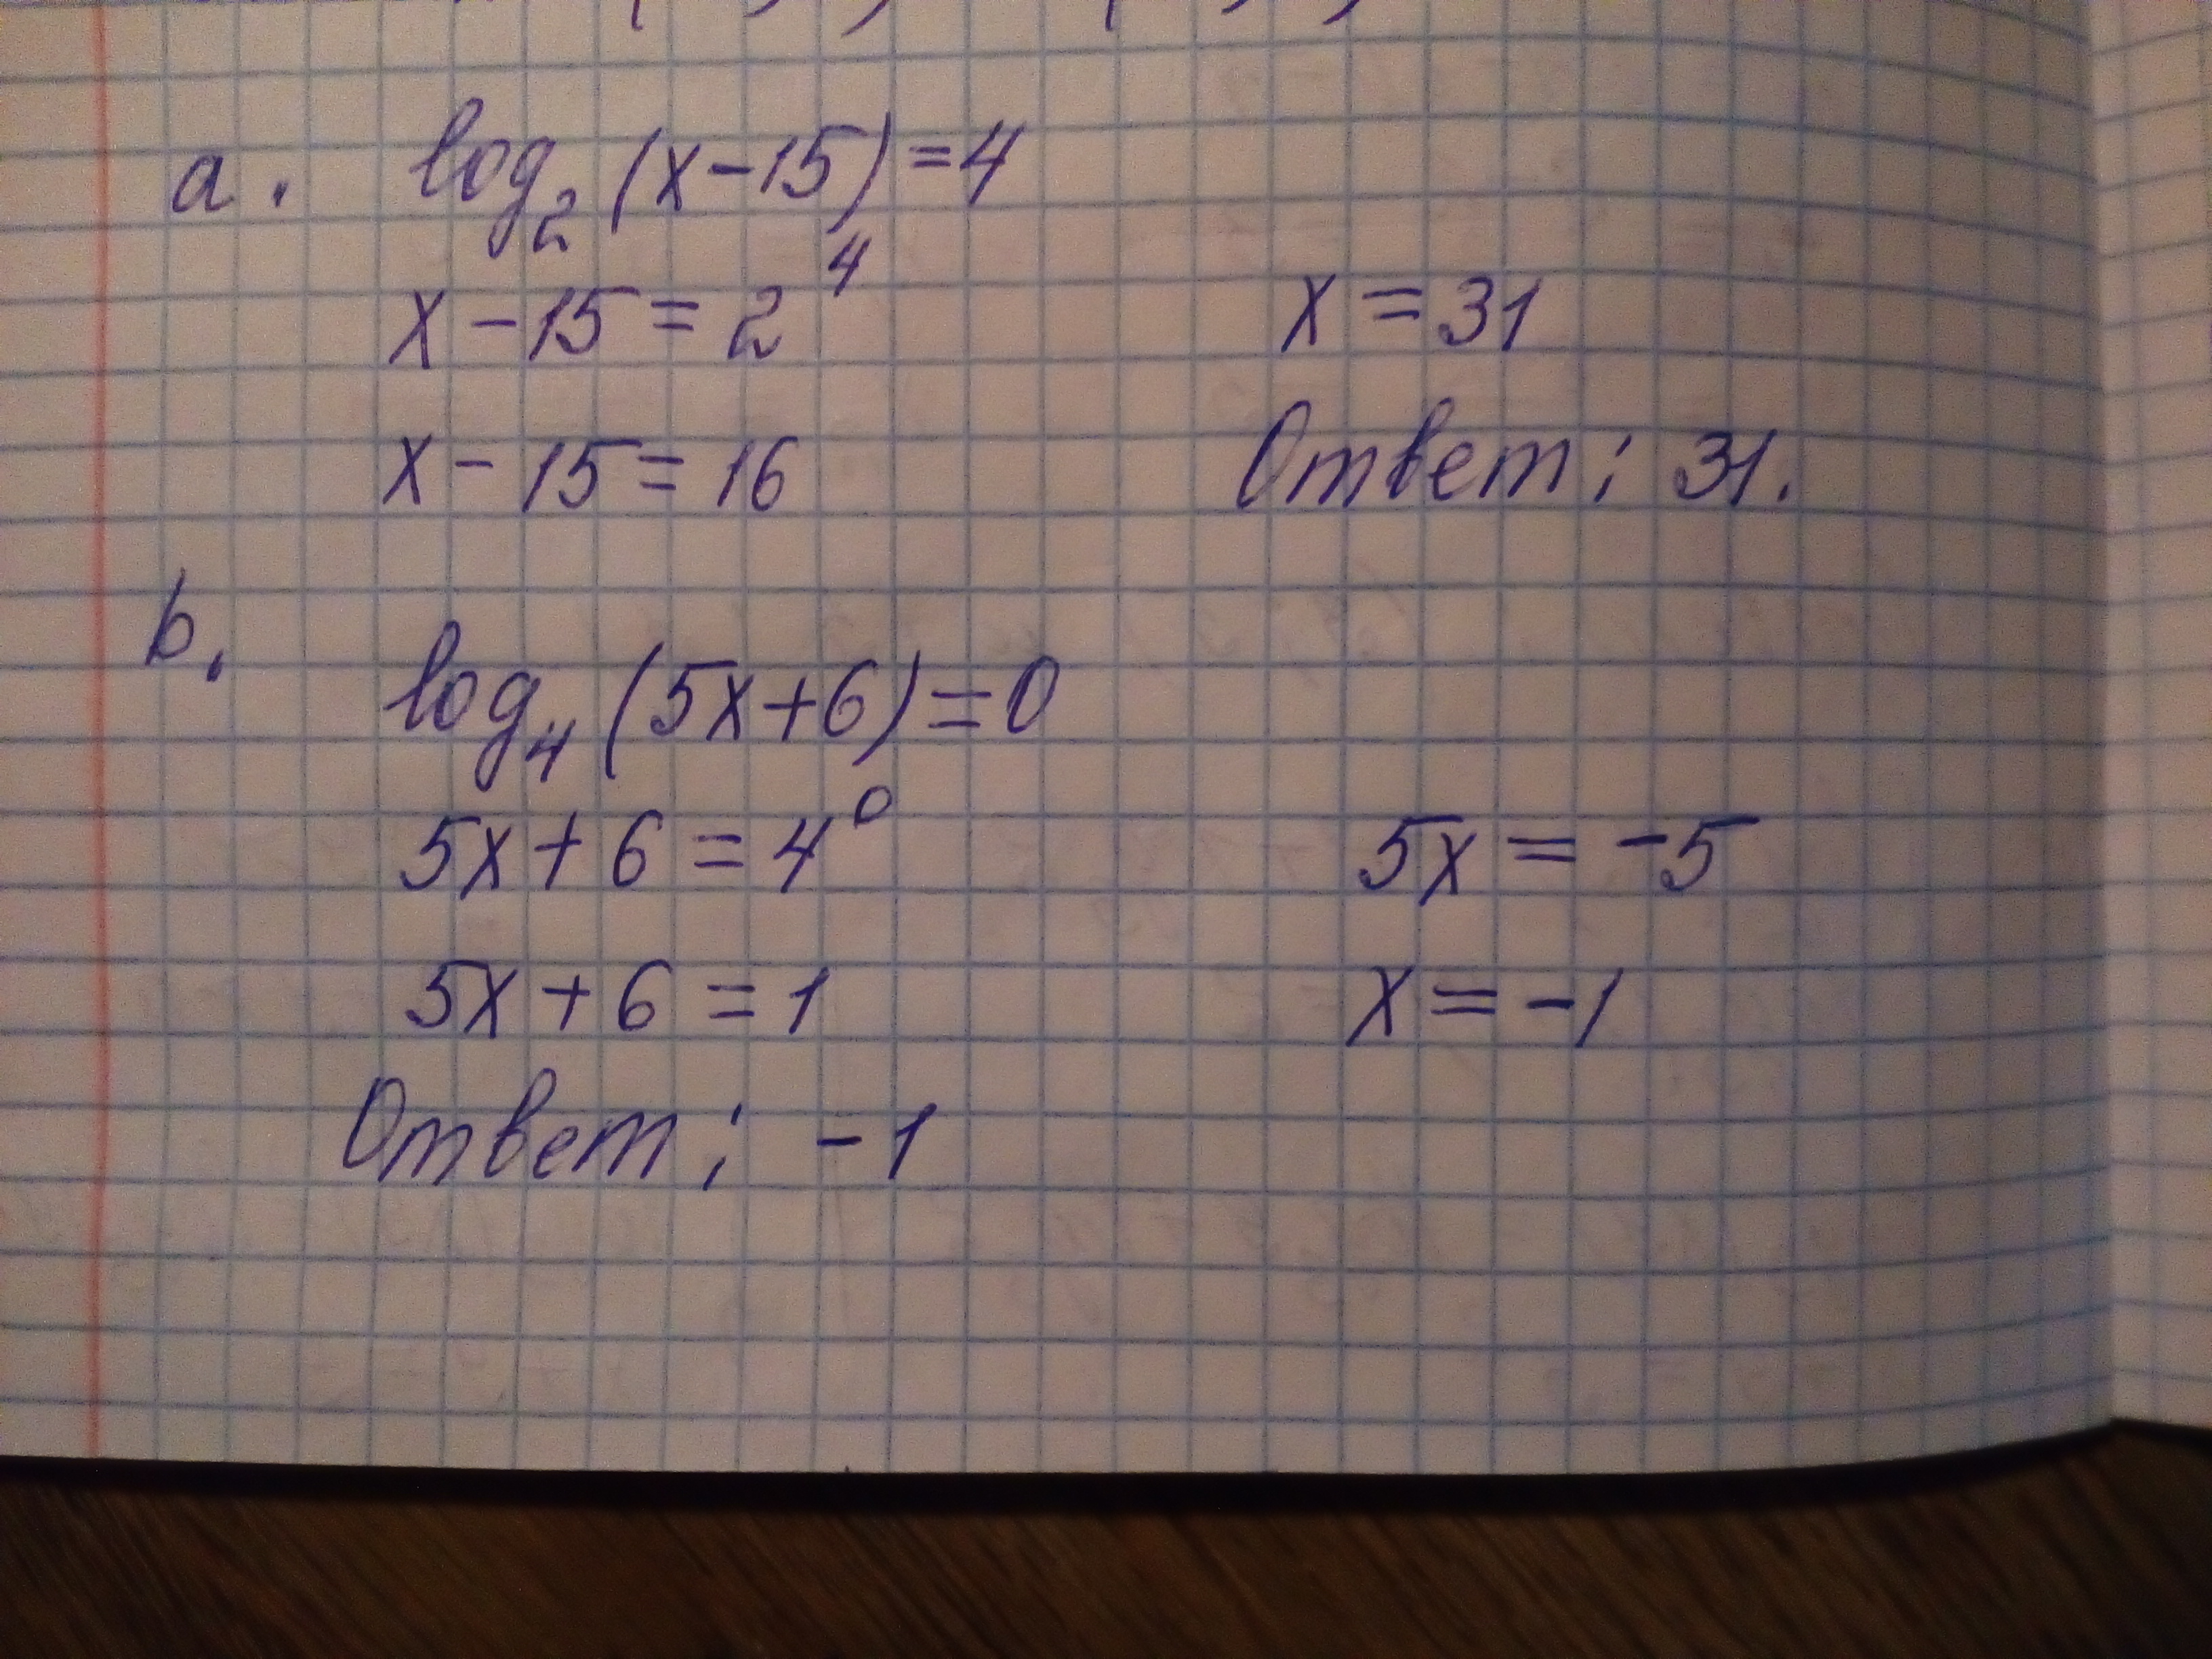 a. log₂(x-15)=4
x-15=2⁴
x-15=16
x=31
Ответ: 31.
b. log₄(5x+6)=0
5x+6=4⁰
5x+6=1
5x=-5
x=-1
Ответ: -1